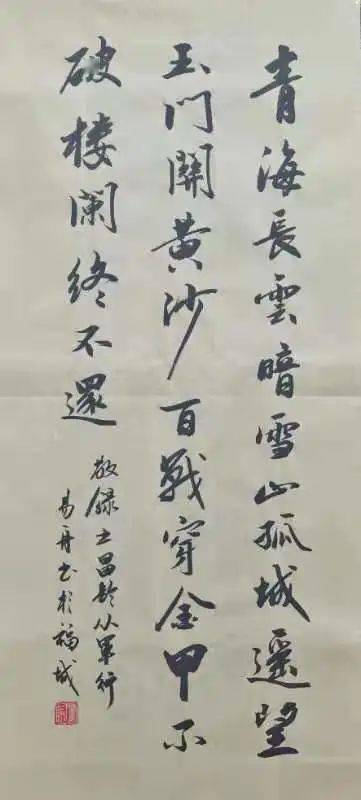 青海長雲暗雪山孤城遥望
玉門關黄沙百戰穿金甲不
破楼阑终不還
敬録王昌齡从軍行
易舟书於福城